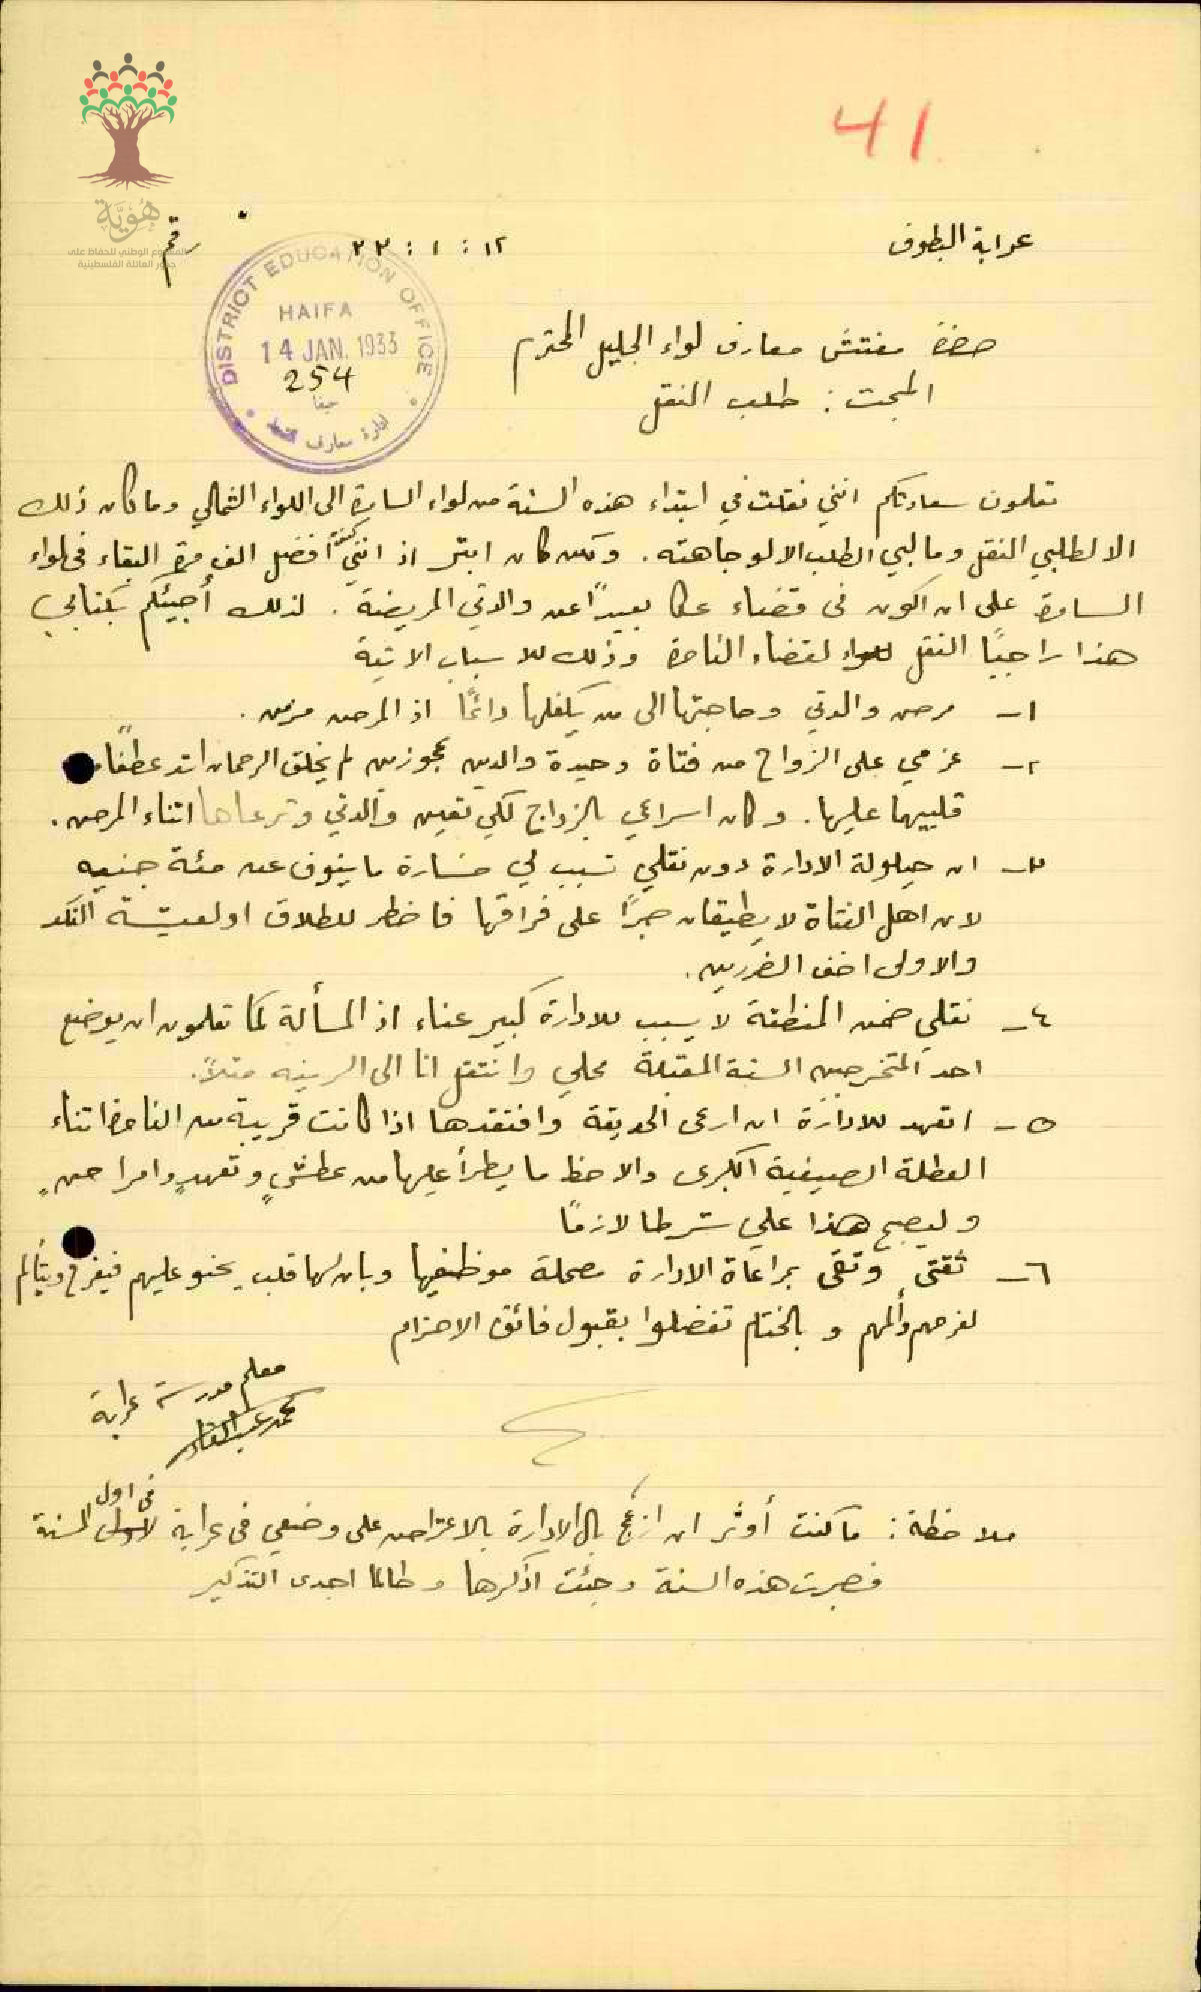 41
هُوِيَّة
المشروع الوطني للحفاظ على
جذور العائلة الفلسطينية
عرابة البطوف
١٢ : ١ : ٣٣
رقم
DISTRICT EDUCATION OFFICE
HAIFA
14 JAN. 1933
254
حيفا
ادارة معارف
حضرة مفتش معارف لواء الجليل المحترم
المبحث : طلب النقل
تعلمون سعادتكم انني نقلت في ابتداء هذه السنة من لواء السامرة الى اللواء الشمالي وما كان ذلك
الا لطلبي النقل وما لبي الطلب الا لوجاهته . ولكن كان ابتر اذ انني كنت افضل الف مرة البقاء في لواء
السامرة على ان اكون في قضاء عكا بعيدًا عن والدتي المريضة . لذلك أجيئكم بكتابي
هذا راجيًا النقل لقضاء الناصرة وذلك للاسباب الاتية
١ـ مرض والدتي وحاجتها الى من يكفلها دائمًا اذ المرض مزمن .
٢ـ عزمي على الزواج من فتاة وحيدة والدين عجوزين لم يخلق الرحمان اشد عطفًا من
قلبيهما عليها . وكان اسراعي بالزواج لكي تعين والدتي وترعاها اثناء المرض .
٣ـ ان حيلولة الادارة دون نقلي تسبب لي خسارة ما ينوف عن مئة جنيه
لان اهل الفتاة لا يطيقان صبرًا على فراقها فاضطر للطلاق او لعيشة النكد
والاولى اخف الضررين .
٤ـ نقلي ضمن المنطقة لا يسبب للادارة كبير عناء اذ المسألة كما تعلمون ان يوضع
احد المتخرجين السنة المقبلة محلي وانتقل انا الى الرينه مثلاً .
٥ـ اتعهد للادارة ان ارعى الحديقة وافتقدها اذا كانت قريبة من الناصرة اثناء
العطلة الصيفية الكبرى والاحظ ما يطرأ عليها من عطشٍ وتعهدٍ وامراضٍ
وليصبح هذا علي شرطا لازمًا
٦ـ ثقتي وتقى بمراعاة الادارة مصلحة موظفيها وبان لها قلب يحنو عليهم فيفرح ويتألم
لفرحهم وألمهم و بالختام تفضلوا بقبول فائق الاحترام
معلم مدرسة عرابة
محمد عبد القادر
ملاحظة : ما كنت أوثر ان ازعج بال الادارة بالاعتراض على وضعي في عرابة في اول السنة
فصبرت هذه السنة وجئت اذكرها وطالما اجدى التذكير